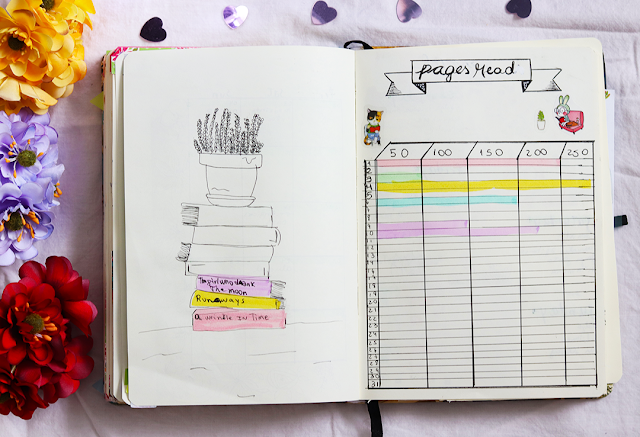 The girl who drank
The moon
Runaways
a wrinkle in Time
pages read
50 100 150 200 250
1
2
3
4
5
6
7
8
9
10
11
12
13
14
15
16
17
18
19
20
21
22
23
24
25
26
27
28
29
30
31